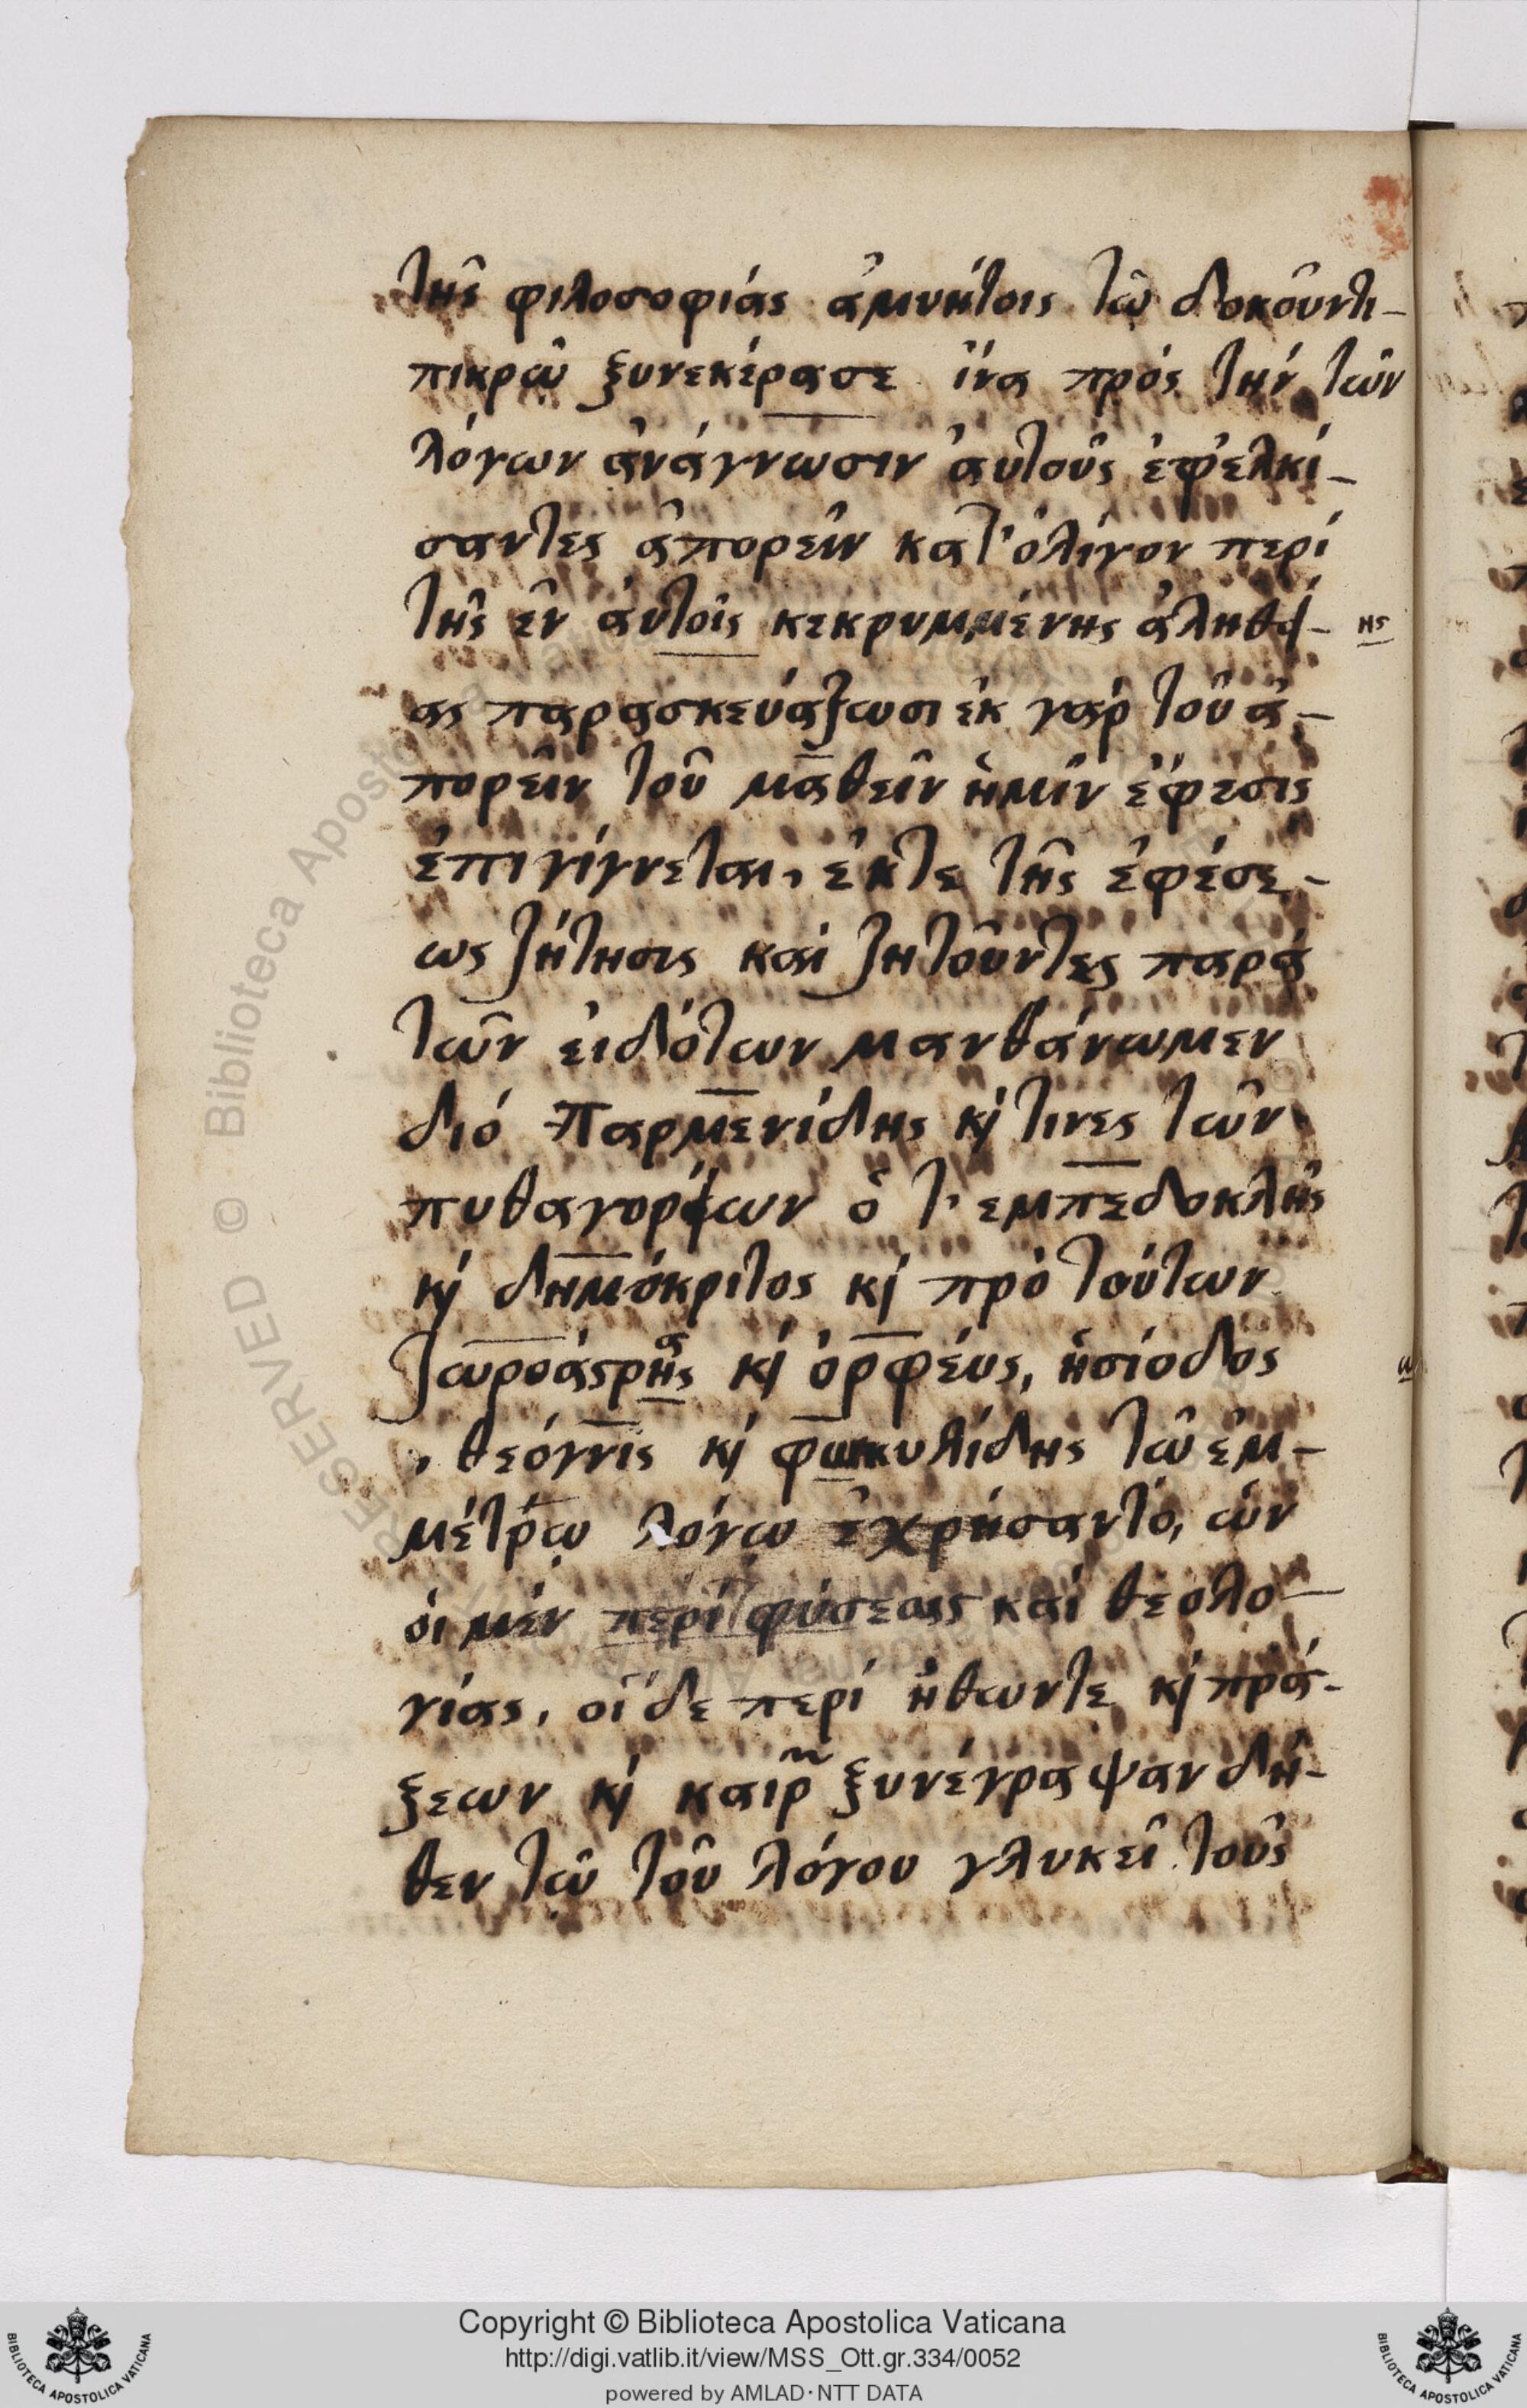 τῆς φιλοσοφιάς ἀμυήτοις τῶ δοκοῦντι-
πικρῶ ξυνεκέρασε ἵνα πρός τήν τῶν
λόγων ἀνάγνωσιν ἀυτοῦς ἐφελκί-
σαντες ἀπορεῖν κατ' ὀλίγον περί
τῆς ἐν ἀυτοῖς κεκρυμμένης ἀληθεί- ης
ας παρασκευάζωσι ἐκ γάρ τοῦ ἀ-
πορεῖν τοῦ μαθεῖν ἡμῖν ἔφεσις
ἐπιγίγνεται, ἔκτε τῆς ἐφέσε-
ως ζήτησις καί ζητοῦντες παρά
τῶν εἰδότων μανθάνωμεν
διό Παρμενίδης κ' τινες τῶν
πυθαγορείων ὅ τ' εμπεδοκλῆς
κ' δημόκριτος κ' πρό τούτων
ζωροάστρης κ' ὀρφέυς, ἡσίοδος
, θεόγνις κ' φωκυλίδης τῶ ἐμ-
μέτρω λόγω ἐχρήσαντό, ὧν
ὁι μέν περί φύσεως καί θεολο-
γίας, οἵ δε περί ἠθωντε κ' πρά-
ξεων κ' καιρ~ ξυνέγραψαν δή-
θεν τῶ τοῦ λόγου γλυκεῖ τοῦς
Copyright © Biblioteca Apostolica Vaticana
http://digi.vatlib.it/view/MSS_Ott.gr.334/0052
powered by AMLAD·NTT DATA
BIBLIOTECA APOSTOLICA VATICANA
BIBLIOTECA APOSTOLICA VATICANA